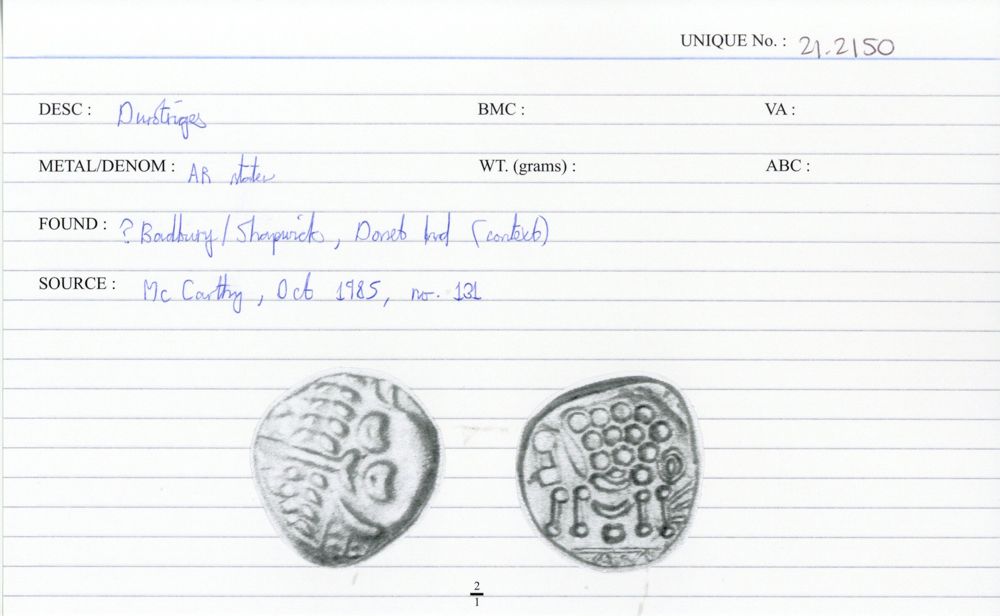 UNIQUE No. : 21.2150
DESC : Durotriges BMC : VA :
METAL/DENOM : AR stater WT. (grams) : ABC :
FOUND : ? Badbury/Shapwick, Dorset hrd (context)
SOURCE : Mc Carthy, Oct 1985, no. 131
2
1